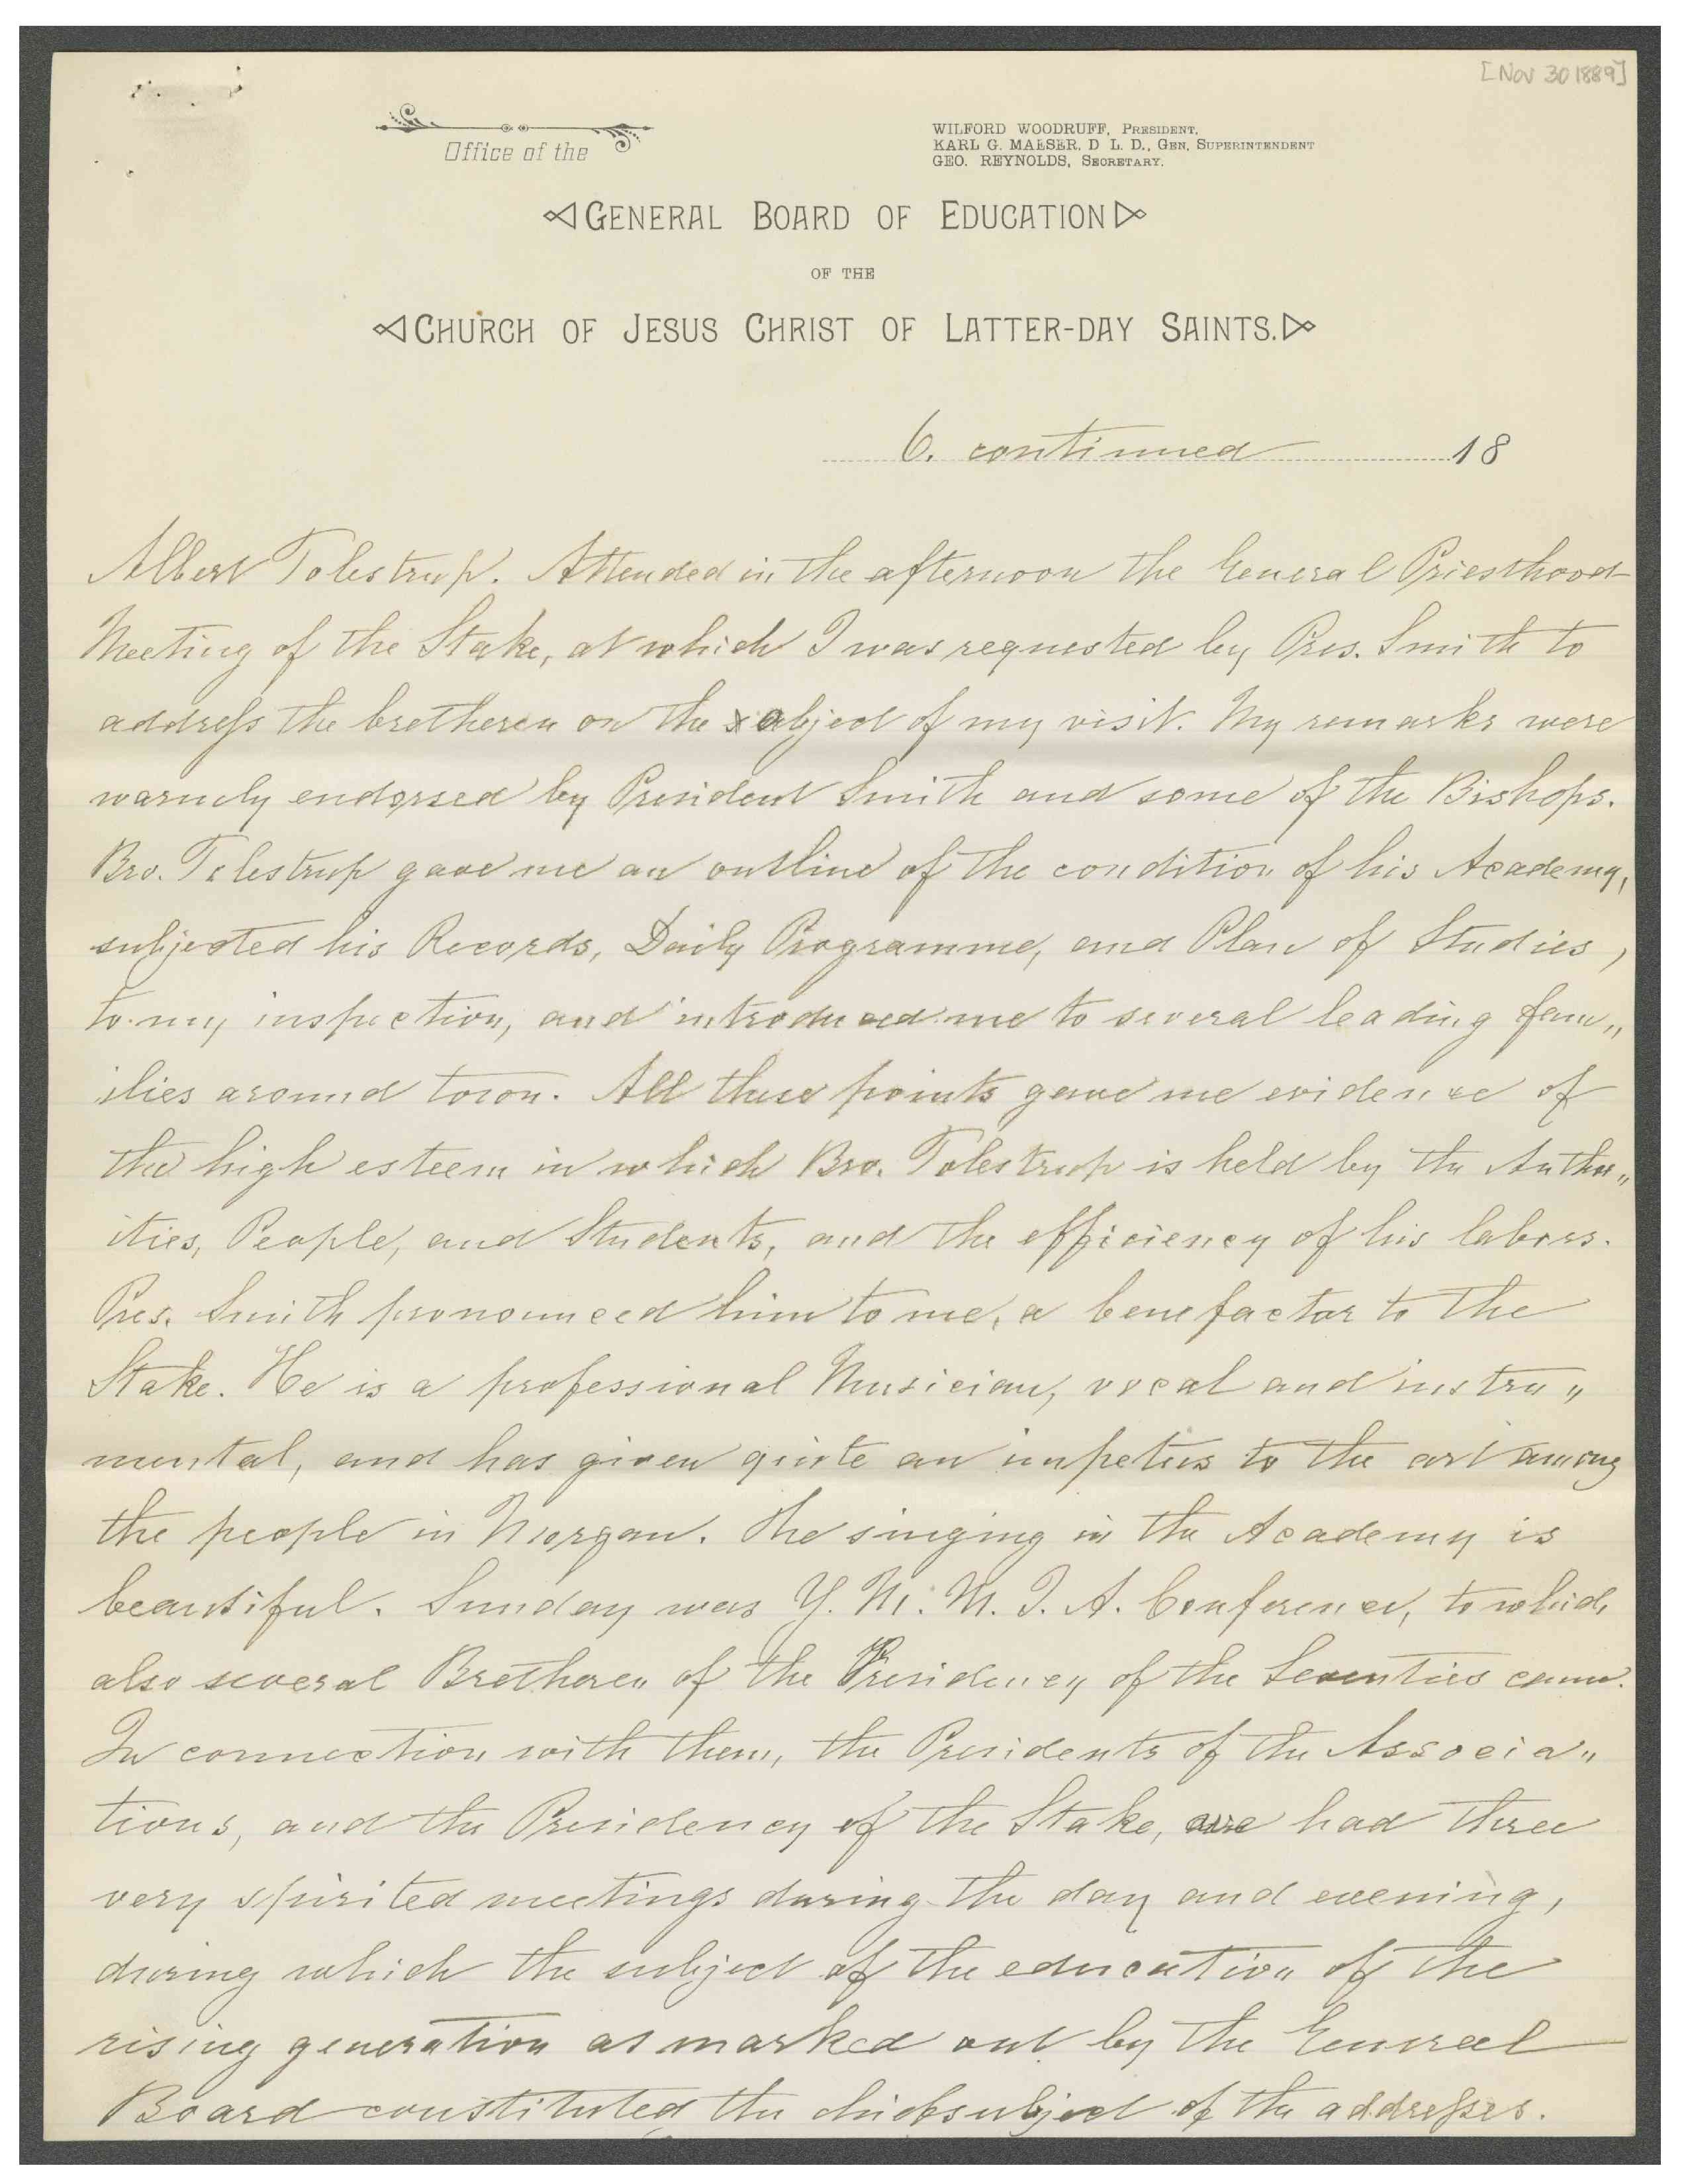 [Nov 30 1889]
Office of the
WILFORD WOODRUFF, PRESIDENT,
KARL G. MAESER, D L. D., GEN. SUPERINTENDENT
GEO. REYNOLDS, SECRETARY.
GENERAL BOARD OF EDUCATION
OF THE
CHURCH OF JESUS CHRIST OF LATTER-DAY SAINTS.
6. continued 18
Albert Tolestrup. Attended in the afternoon the General Priesthood
Meeting of the Stake, at which I was requested by Pres. Smith to
address the bretheren on the object of my visit. My remarks were
warmly endorsed by President Smith and some of the Bishops.
Bro. Tolestrup gave me an outline of the condition of his Academy,
subjected his Records, Daily Programme, and Plan of Studies,
to my inspection, and introduced me to several leading fam„
ilies around town. All these points gave me evidence of
the high esteem in which Bro. Tolestrup is held by the Author„
ities, People, and Students, and the efficiency of his labors.
Pres. Smith pronounced him to me, a benefactor to the
Stake. He is a professional Musician, vocal and instru„
mental, and has given quite an impetus to the art among
the people in Morgan. The singing in the Academy is
beautiful. Sunday was Y. M. M. I. A. Conference, to which
also several Bretheren of the Presidency of the Seventies came.
In connection with them, the Presidents of the Associa„
tions, and the Presidency of the Stake, we had three
very spirited meetings during the day and evening,
during which the subject of the education of the
rising generation as marked out by the General
Board constituted the chief subject of the addresses.